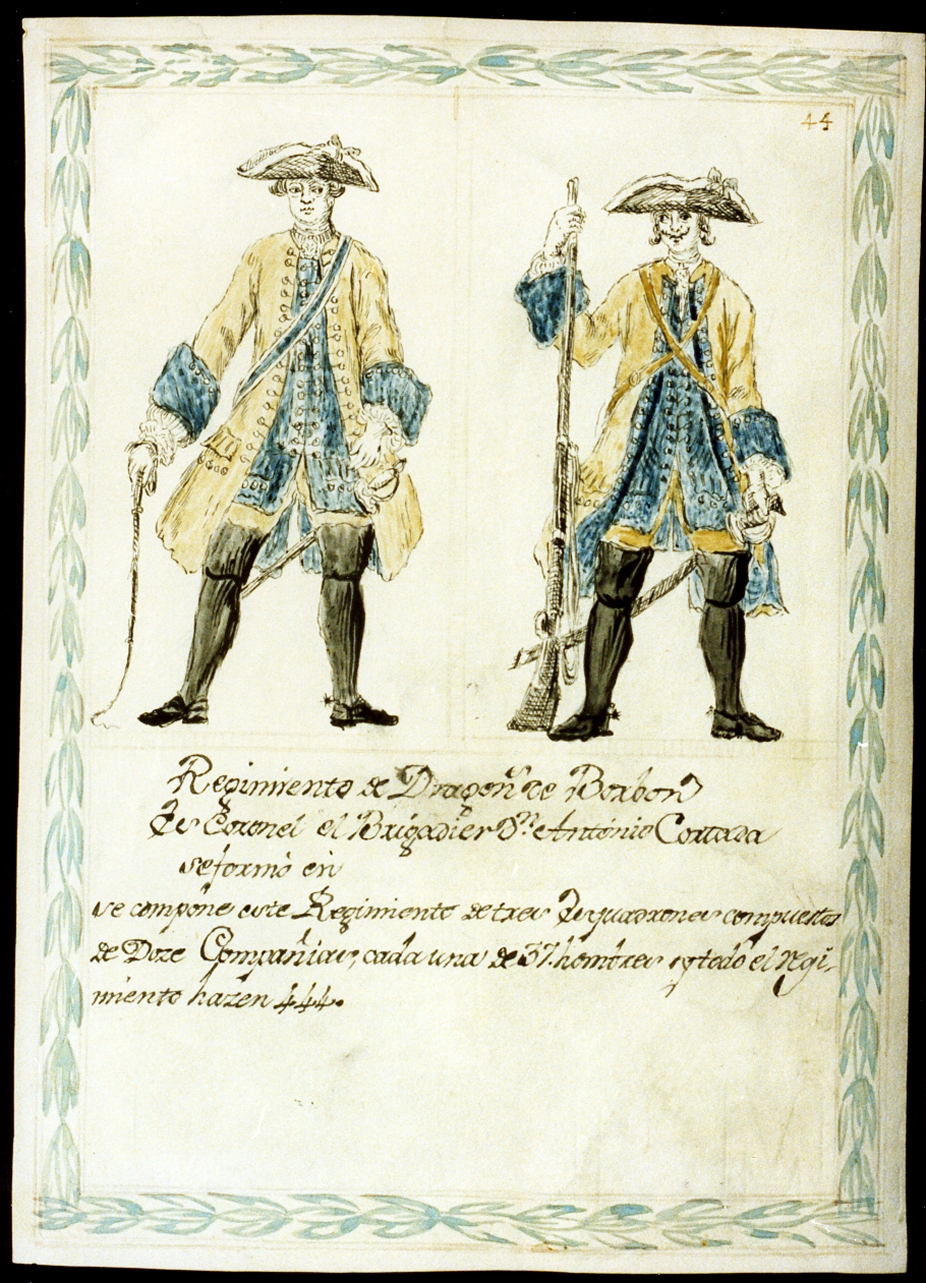 44
Regimiento de Dragon.s de Borbon
Es Coronel el Brigadier D.n Antonio Cortada
se formó en
se compone este Regimiento de tres Esquadrones compuestos
de Doze Compañias, cada una de 37 hombres y todo el regi-
miento hazen 444.